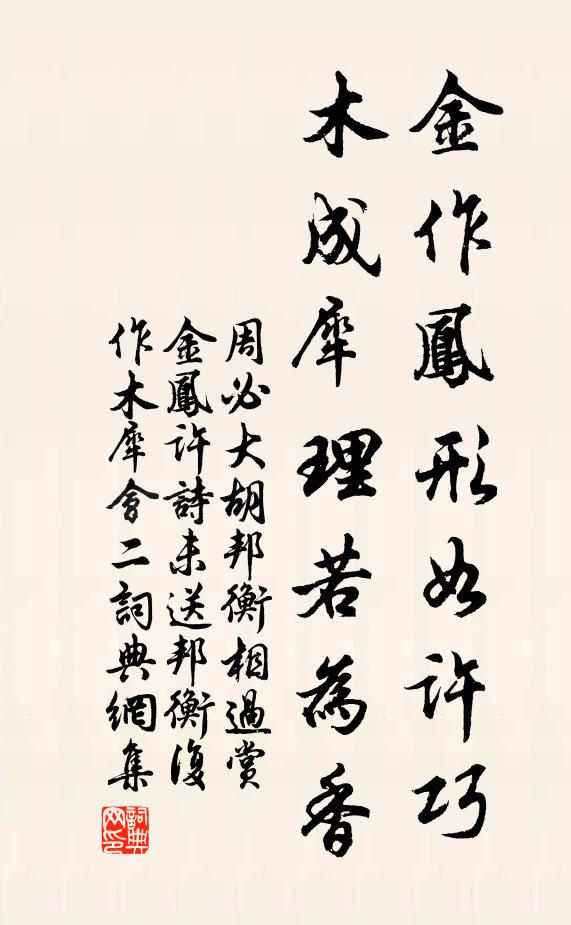 金作鳳形如許巧
木成犀理若為香
周必大胡邦衡相過賞
金鳳許詩未送邦衡復
作木犀會二詞典網集
詞典網印